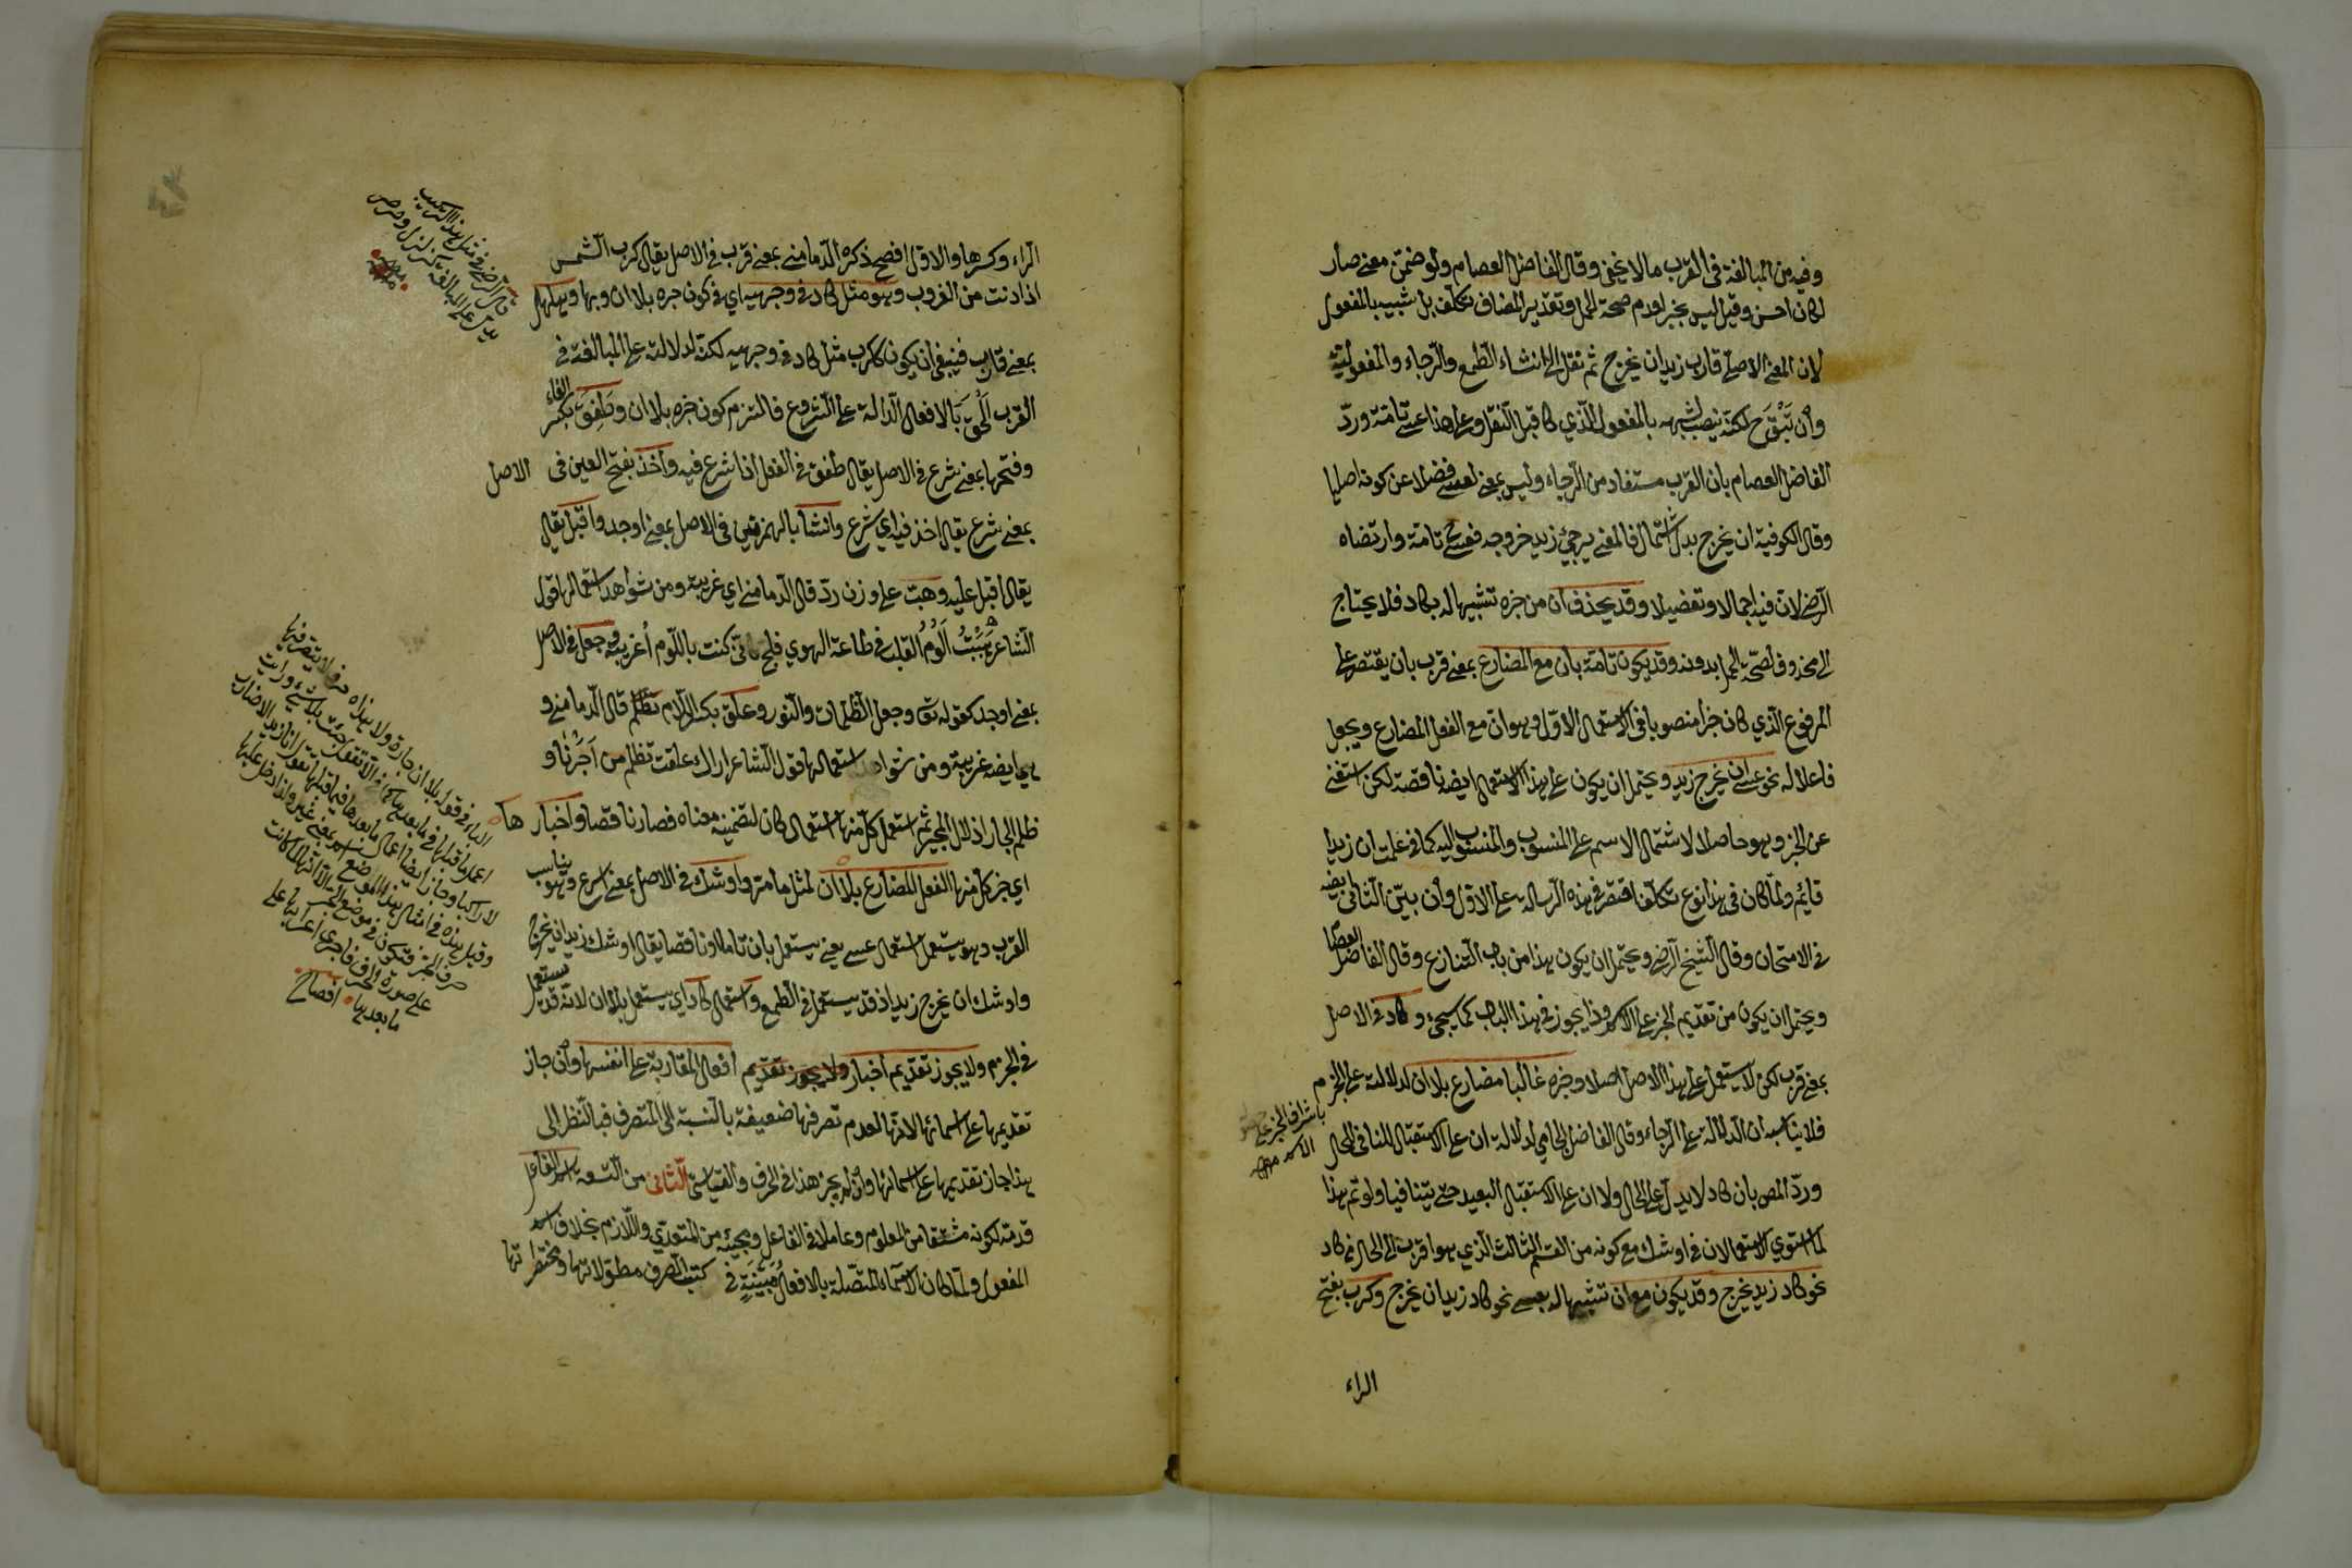 وفيه من المبالغة في القرب ما لا يخفى وقال الفاضل العصام ولو ضمن معنى صار
لكان احسن وقيل ليس بخبر لعدم صحة الحمل وتقدير المضاف تكلف بل شبيه بالمفعول
لان المعنى الاصلي قارب زيد ان يخرج ثم نقل الى انشاء الطمع والرجاء والمفعولية
وان لم تبق ح لكنه ينصب لشبهه بالمفعول الذي كا قبل النقل وعلى هذا عسى تامة وردّ
الفاضل العصام بان القرب مستفاد من الرجاء وليس بمعنى لعسى فضلا عن كونه اصليا
وقال الكوفية ان يخرج بدل اشتمال فالمعنى يرجى زيد خروجه فعسى تامة وارتضاه
الرضى لان فيه اجمالا وتفصيلا وقد يحذف ان من خبره تشبيها له بكاد فلا يحتاج
الى محذوف لصحة الحمل بدونه وقد يكون تامة بان مع المضارع بمعنى قرب بان يقتصر على
المرفوع الذي كان خبرا منصوبا في الاستعمال الاول وهو ان مع الفعل المضارع ويجعل
فاعلا له نحو عسى ان يخرج زيد ويحتمل ان يكون على هذا الاستعمال ايضا ناقصة لكن استغنى
عن الخبر وهو حاصلا لاشتمال الاسم على المنسوب والمنسوب اليه كما في علمت ان زيدا
قائم ولما كان في هذا نوع تكلف اقتصر في هذه الرسالة على الاول وان بيّن الثاني ايضا
في الامتحان وقال الشيخ الرضى ويحتمل ان يكون هذا من باب التنازع وقال الفاضل العصام
ويحتمل ان يكون من تقديم الخبر على الاسم وذا يجوز في هذا الباب كما سيجئ وكاد في الاصل
بمعنى قرب لكن لا يستعمل على هذا الاصل اصلا وخبره غالبا مضارع بلا ان لدلالته على الجزم
باشراف الخبر على
الاسم منه
فلا يناسبه ان الدالة على الرجاء وقال الفاضل الجامي لدلالة ان على الاستقبال المنافي للحال
وردّ المص بان كاد لا يدل على الحال ولا ان على الاستقبال البعيد حتى يتنافيا ولو تم هذا
لما استوي الاستعمالان في اوشك مع كونه من القسم الثالث الذي هو اقرب الى الحال من كاد
نحو كاد زيد يخرج وقد يكون مع ان تشبيها له بعسى نحو كاد زيد ان يخرج وكرب بفتح
الراء
الراء وكسرها والاول افصح ذكره الدمامينى بمعنى قرب في الاصل يقال كرب الشمس
اذا دنت من الغروب وهو مثل كاد في وجهيه اي في كون خبره بلا ان وبها وهلهل
بمعنى قارب فينبغي ان يكون ككرب مثل كاد في وجهيه لكنه لدلالته على المبالغة في
القرب اُلحق بالافعال الدالة على الشروع فالتزم كون خبره بلا ان وطَفِقَ بكسر الفاء
وفتحها بمعنى شرع في الاصل يقال طفق في الفعل اذا شرع فيه واخذ بفتح العين في الاصل
بمعنى شرع يقال اخذ فيه اي شرع وانشأ بالهمزتين في الاصل بمعنى اوجد واقبل يقال
يقال اقبل عليه وهبّ على وزن ردّ قال الدمامينى اي غريبة ومن شواهد استعمالها قول
الشاعر هَبَبْتُ اَلُومُ القلب في طاعة الهوي فلج كاني كنت باللوم اغريه وجعل في الاصل
بمعنى اوجد كقوله تع وجعل الظلمات والنور وعلق بكسر اللام تظلم قال الدمامينى و
هي ايضا غريبة ومن شواهد استعمالها قول الشاعر اراك علقت تظلم من اَجَرْنَا و
ظلم الجار اذلال المجير ثم استعمل كل منها استعمال كان لتضمينه معناه فصار ناقصا واخبارها
اي خبر كل منها الفعل المضارع بلا ان لمثل ما مر واوشك في الاصل بمعنى اسرع وهو يناسب
القرب وهو يستعمل استعمال عسى يعنى يستعمل بان تاما او ناقصا يقال اوشك زيد ان يخرج
واوشك ان يخرج زيد اذ قد يستعمل في الطمع واستعمال كاد اي يستعمل بلا ان لانه قد يستعمل
في الجزم ولا يجوز تقديم اخبار ولا يجوز تقديم افعال المقاربة على انفسها وان جاز
تقديمها على اسمائها لانها لعدم تصرفها ضعيفة بالنسبة الى المتصرف فبالنظر الى
هذا جاز تقديمها على اسمائها وان لم يجز هذا في الحرف والقياسي الثاني من التسعة اسم الفاعل
قدمه لكونه مشتقا من المعلوم وعاملا في الفاعل ومجيئه من المتعدي واللازم بخلاف اسم
المفعول ولما كان الاسماء المتصلة بالافعال مُبَيَّنَةً في كتب الصرف مطولاتها ومختصراتها
قال الرضى في مثل هذا التركيب
يدل على المبالغة كزلزل وصرصر
الباء في قوله بلا ان جارة ولا هذه حرف لا يتصرفها
اعمل ما قبلها فيما بعدها كما في الا تفعل وجئت بلا شئ ورأيت
لا راكبا وجاز ايضا اعمال ما بعدها فيما قبلها تقول انا زيدا لا ضارب
وقيل هذه في امثال هذا الموضع اسم بمعنى غير واذا دخل عليها
حرف الجر فتكون في موضع الجر الا انها لما كانت
على صورة الحرف فاجري اعرابها على
ما بعدها افصاح